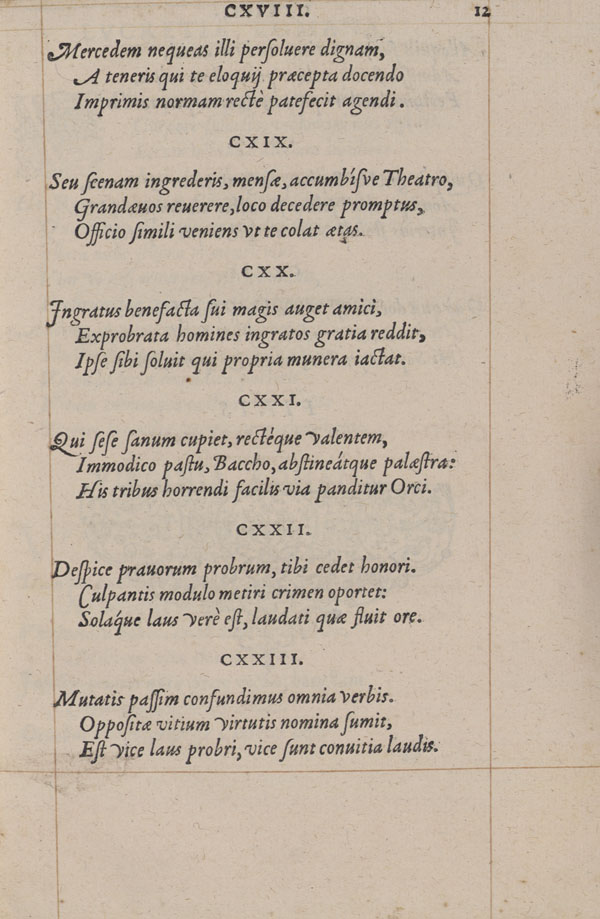 CXVIII. 12
Mercedem nequeas illi perſoluere dignam,
A teneris qui te eloquij præcepta docendo
Imprimis normam rectè patefecit agendi.
CXIX.
Seu ſcenam ingrederis, menſæ, accumbíſve Theatro,
Grandæuos reuerere, loco decedere promptus,
Officio ſimili veniens vt te colat ætas.
CXX.
Ingratus benefacta ſui magis auget amici,
Exprobrata homines ingratos gratia reddit,
Ipſe ſibi ſoluit qui propria munera iactat.
CXXI.
Qui ſeſe ſanum cupiet, rectéque valentem,
Immodico paſtu, Baccho, abſtineátque palæſtra:
His tribus horrendi facilis via panditur Orci.
CXXII.
Deſpice prauorum probrum, tibi cedet honori.
Culpantis modulo metiri crimen oportet:
Solaque laus verè eſt, laudati quæ fluit ore.
CXXIII.
Mutatis paſſim confundimus omnia verbis.
Oppoſitæ vitium virtutis nomina ſumit,
Eſt vice laus probri, vice ſunt conuitia laudis.